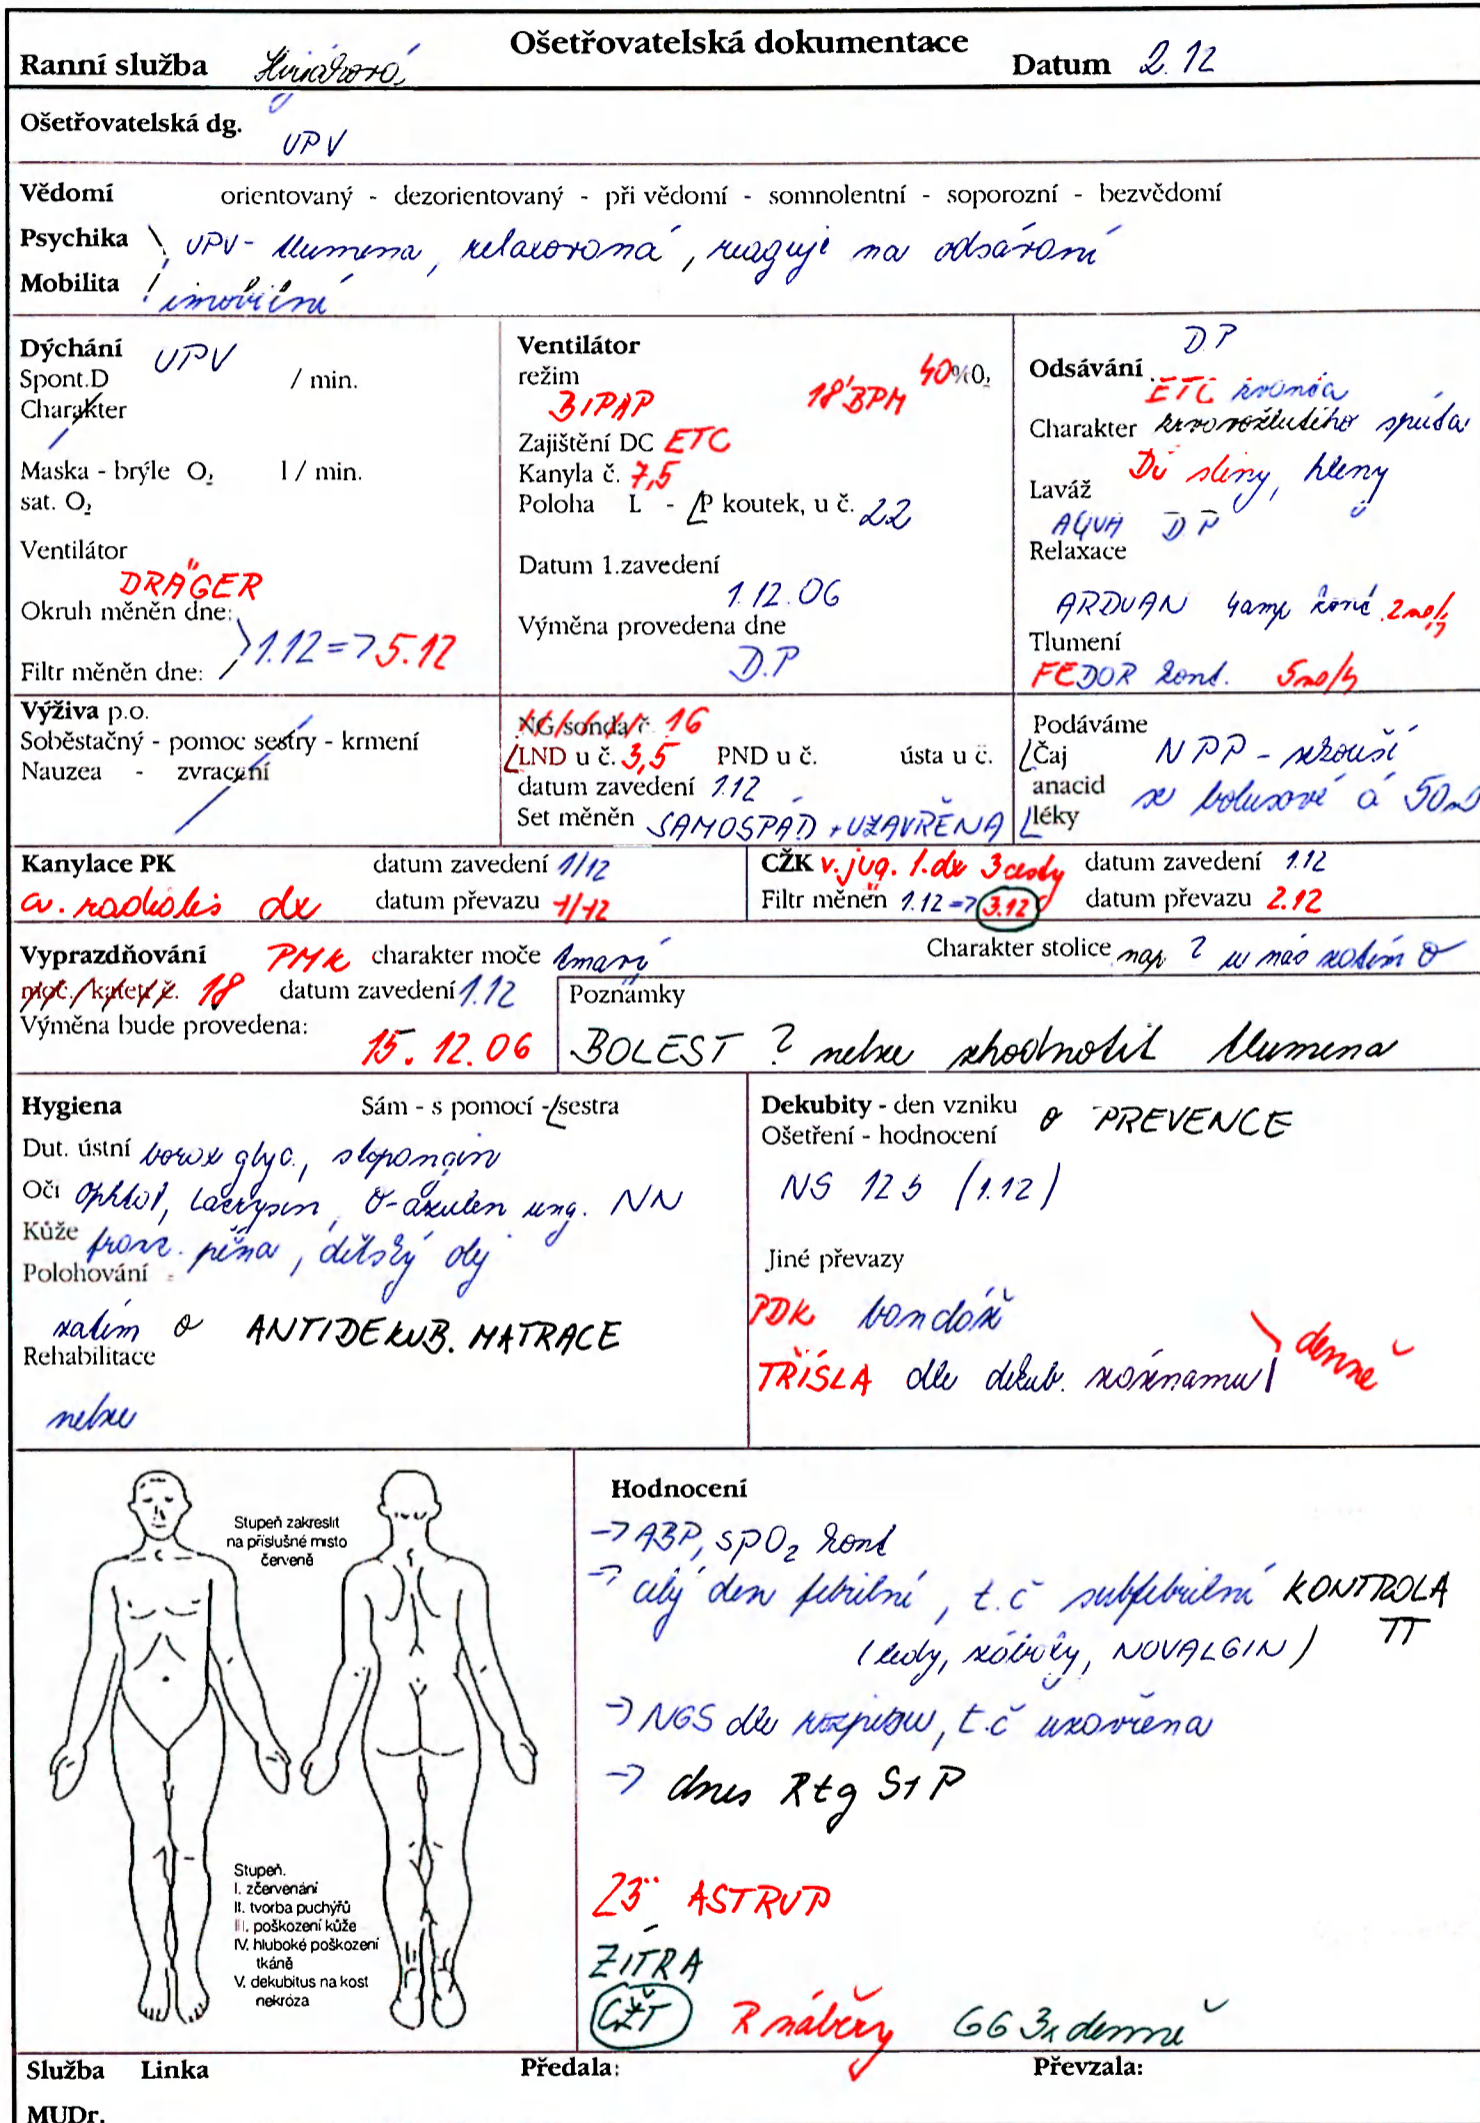 Ošetřovatelská dokumentace
Ranní služba Datum 2.12
Ošetřovatelská dg. UPV
Vědomí orientovaný - dezorientovaný - při vědomí - somnolentní - soporozní - bezvědomí
Psychika UPV - tlumena, relaxovaná, reaguje na odsávání
Mobilita ! imobilní
Dýchání UPV
Spont.D / min.
Charakter
Maska - brýle O₂ l / min.
sat. O₂
Ventilátor
DRÄGER
Okruh měněn dne:
1.12 => 5.12
Filtr měněn dne:
Ventilátor
režim 40%O₂
BIPAP 18'BPM
Zajištění DC ETC
Kanyla č. 7,5
Poloha L - P koutek, u č. 22
Datum 1.zavedení
1.12.06
Výměna provedena dne
D.P
D.P
Odsávání
ETC
Charakter krvavožlutého sputa
DÚ sliny, hleny
Laváž
AQUA D P
Relaxace
ARDUAN 4amp kont. 2ml/h
Tlumení
FEDOR kont. 5ml/h
Výživa p.o.
Soběstačný - pomoc sestry - krmení
Nauzea - zvracení
NG/sonda č. 16
LND u č. 3,5 PND u č. ústa u č.
datum zavedení 1.12
Set měněn SAMOSPÁD + UZAVŘENA
Podáváme
Čaj NPP - zkouší
anacid se bolusově á 50ml
léky
Kanylace PK datum zavedení 1/12
a. radialis dx datum převazu 1/12
CŽK v. jug. l. dx 3 cesty datum zavedení 1.12
Filtr měněn 1.12 => 3.12 datum převazu 2.12
Vyprazdňování PMK charakter moče tmavá Charakter stolice nap ? u nás zatím 0
moč./katetr č. 18 datum zavedení 1.12
Výměna bude provedena:
15.12.06
Poznámky
BOLEST ? nelze zhodnotit tlumena
Hygiena Sám - s pomocí - sestra
Dut. ústní borax glyc., stopangin
Oči Ophtal, Lacrysin, O-azulen ung. NN
Kůže franc. pěna, dětský olej
Polohování
zatím 0 ANTIDEKUB. MATRACE
Rehabilitace
nelze
Dekubity - den vzniku 0 PREVENCE
Ošetření - hodnocení
NS 12 b (1.12)
Jiné převazy
PDK bandáž
TŘÍSLA dle dekub. záznamu
denně
Stupeň zakreslit
na příslušné místo
červeně
Stupeň.
I. zčervenání
II. tvorba puchýřů
III. poškození kůže
IV. hluboké poškození
tkáně
V. dekubitus na kost
nekróza
Hodnocení
-> ABP, SPO₂ kont
-> celý den febrilní, t.č subfebrilní KONTROLA
TT
(ledy, zábaly, NOVALGIN)
-> NGS dle rozpisu, t.č uzavřena
-> dnes Rtg S+P
23°° ASTRUP
ZÍTRA
CŽT R náběry GG 3x denně
Služba Linka Předala: Převzala:
MUDr.